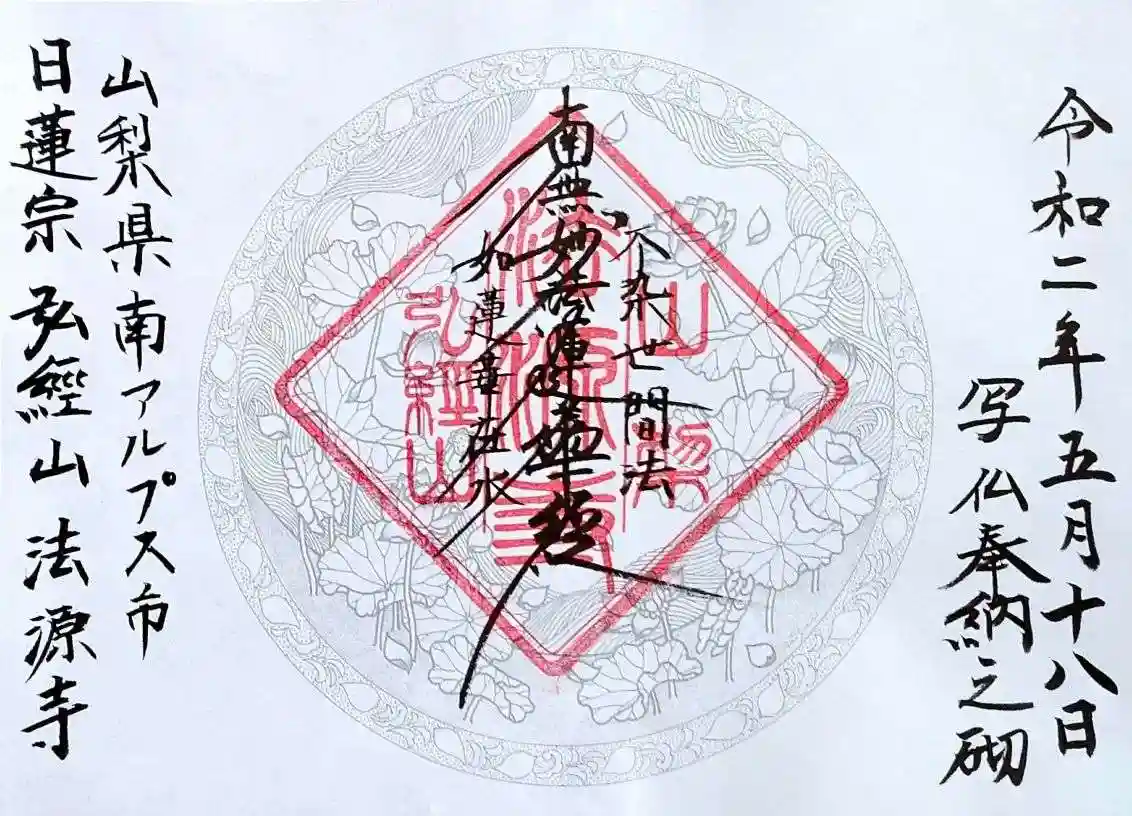 令和二年五月十八日
写仏奉納之砌
不染世間法
南無妙法蓮華経
如蓮華在水
山梨
法源寺
弘経山
山梨県南アルプス市
日蓮宗 弘經山 法源寺